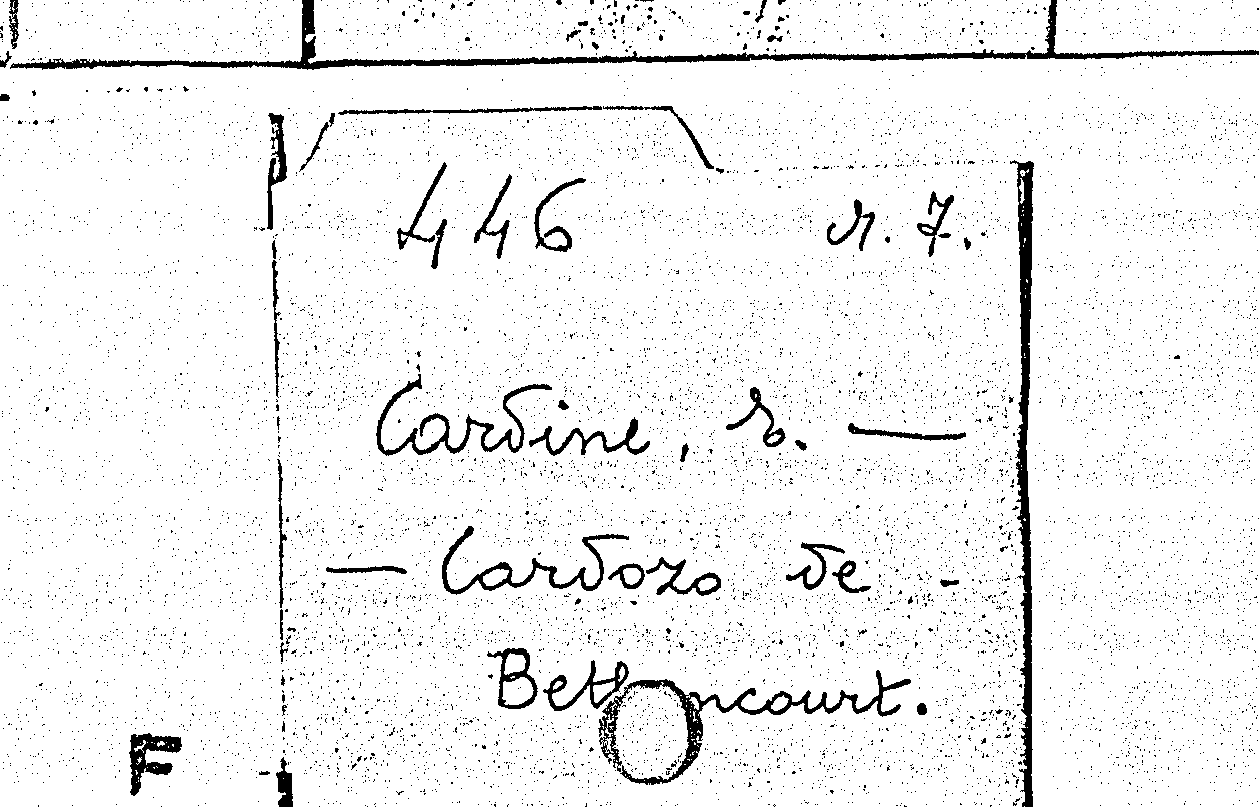 446 r. 7.
Cardine, r. —
— Cardozo de -
Bethencourt.
F